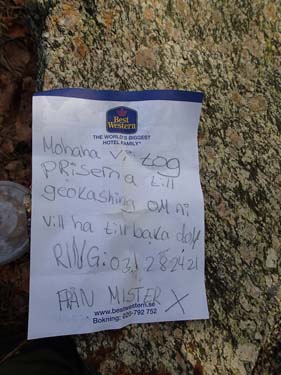 Best
Western
THE WORLD'S BIGGEST
HOTEL FAMILY
Mohaha Vi tog
PRisERNA till
geokashing OM ni
vill ha tillbaka dom
RING: 031 282421
FRÅN MISTER X
www.bestwestern.se
Bokning: 020-792 752